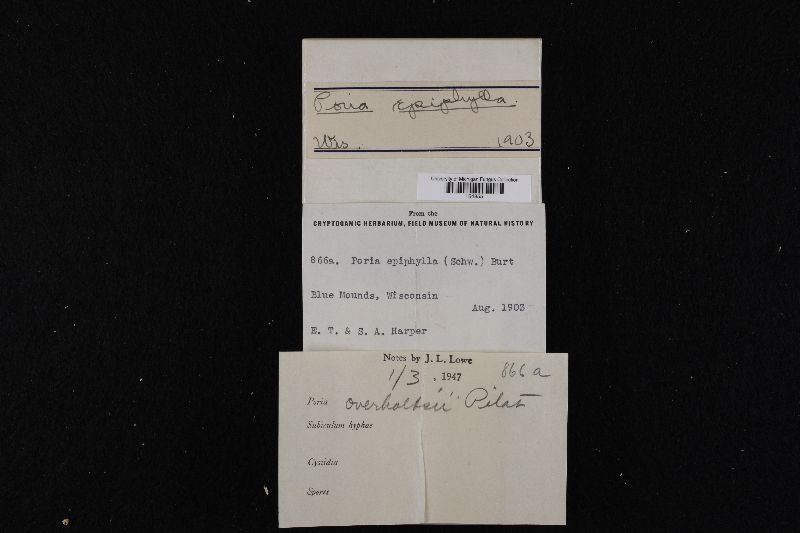 Poria epiphylla.
Wis. 1903
University of Michigan Fungus Collection
From the
CRYPTOGAMIC HERBARIUM, FIELD MUSEUM OF NATURAL HISTORY
866a. Poria epiphylla (Schw.) Burt
Blue Mounds, Wisconsin
Aug. 1903
E. T. & S. A. Harper
Notes by J. L. Lowe
1/3, 1947 866a
Poria overholtsii Pilat
Subiculum hyphae
Cystidia
Spores